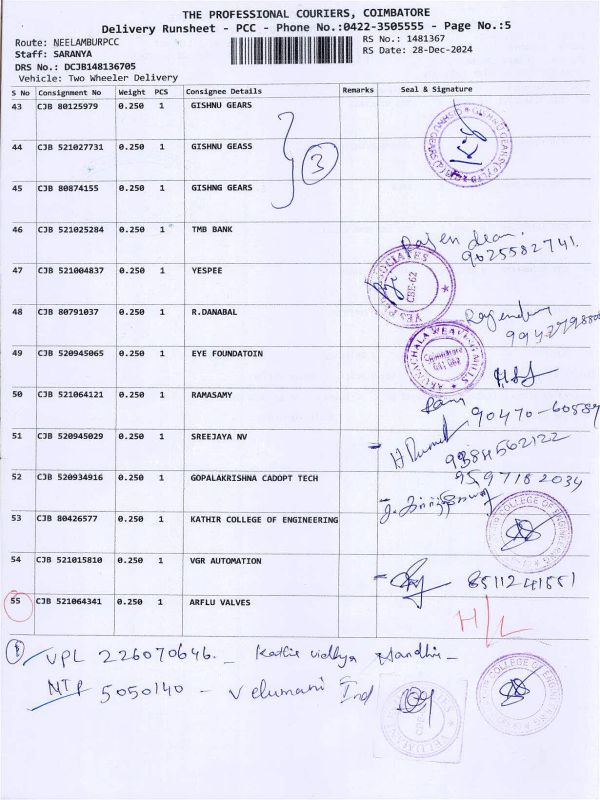 THE PROFESSIONAL COURIERS, COIMBATORE
Delivery Runsheet - PCC - Phone No.:0422-3505555 - Page No.:5
Route: NEELAMBURPCC
RS No.: 1481367
Staff: SARANYA
RS Date: 28-Dec-2024
DRS No.: DCJB148136705
Vehicle: Two Wheeler Delivery
S No Consignment No Weight PCS Consignee Details Remarks Seal & Signature
43 CJB 80125979 0.250 1 GISHNU GEARS
44 CJB 521027731 0.250 1 GISHNU GEASS
3
45 CJB 80874155 0.250 1 GISHNG GEARS
46 CJB 521025284 0.250 1 TMB BANK
9025582741.
47 CJB 521004837 0.250 1 YESPEE
CBE-62
48 CJB 80791037 0.250 1 R.DANABAL
49 CJB 520945065 0.250 1 EYE FOUNDATOIN
50 CJB 521064121 0.250 1 RAMASAMY
90470-60589
51 CJB 520945029 0.250 1 SREEJAYA NV
9384562122
52 CJB 520934916 0.250 1 GOPALAKRISHNA CADOPT TECH
9597182034
53 CJB 80426577 0.250 1 KATHIR COLLEGE OF ENGINEERING
54 CJB 521015810 0.250 1 VGR AUTOMATION
8511241551
55 CJB 521064341 0.250 1 ARFLU VALVES
H/L
VPL 226070646. - Kathir vidhya Mandhir -
NTP 5050140 - Velumani Ind